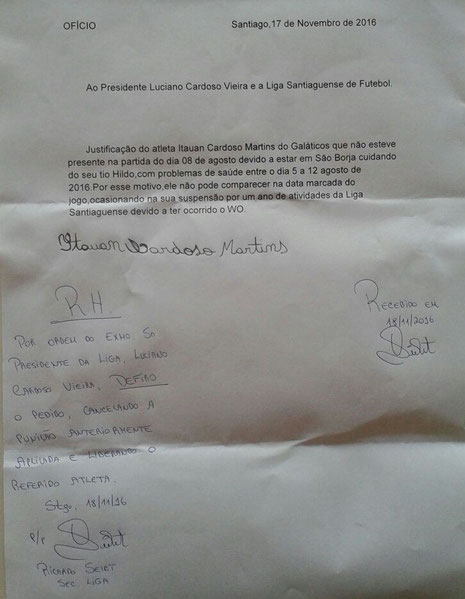 OFÍCIO
Santiago,17 de Novembro de 2016
Ao Presidente Luciano Cardoso Vieira e a Liga Santiaguense de Futebol.
Justificação do atleta Itauan Cardoso Martins do Galáticos que não esteve
presente na partida do dia 08 de agosto devido a estar em São Borja cuidando
do seu tio Hildo,com problemas de saúde entre o dia 5 a 12 agosto de
2016.Por esse motivo,ele não pode comparecer na data marcada do
jogo,ocasionando na sua suspensão por um ano de atividades da Liga
Santiaguense devido a ter ocorrido o WO.
Itauan Cardoso Martins
R.H.
Recebido em
18/11/2016
Por ordem do Exmo. Sr.
Presidente da Liga, Luciano
Cardoso Vieira, DEFIRO
o pedido, cancelando a
punição anteriormente
aplicada e liberando o
referido atleta.
Stgo, 18/11/16
p/p
Ricardo
Sec. Liga